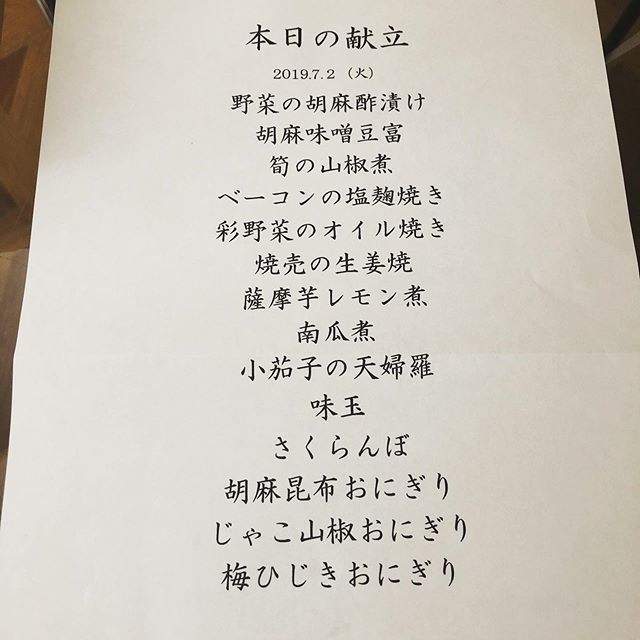 本日の献立
2019.7.2 (火)
野菜の胡麻酢漬け
胡麻味噌豆富
筍の山椒煮
ベーコンの塩麹焼き
彩野菜のオイル焼き
焼売の生姜焼
薩摩芋レモン煮
南瓜煮
小茄子の天婦羅
味玉
さくらんぼ
胡麻昆布おにぎり
じゃこ山椒おにぎり
梅ひじきおにぎり